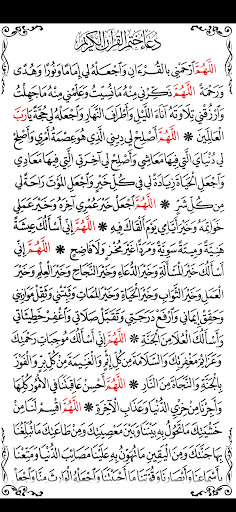 دُعَاءُ خَتْمِ الْقُرْآنِ الْكَرِيمِ
اللَّهُمَّ ارْحَمْنِي بِالْقُرْءَانِ وَاجْعَلْهُ لِي إِمَامًا وَنُورًا وَهُدًى
وَرَحْمَةً اللَّهُمَّ ذَكِّرْنِي مِنْهُ مَانَسِيتُ وَعَلِّمْنِي مِنْهُ مَاجَهِلْتُ
وَارْزُقْنِي تِلَاوَتَهُ آنَاءَ اللَّيْلِ وَأَطْرَافَ النَّهَارِ وَاجْعَلْهُ لِي حُجَّةً يَارَبَّ
الْعَالَمِينَ * اللَّهُمَّ أَصْلِحْ لِي دِينِي الَّذِي هُوَ عِصْمَةُ أَمْرِي وَأَصْلِحْ
لِي دُنْيَايَ الَّتِي فِيهَا مَعَاشِي وَأَصْلِحْ لِي آخِرَتِي الَّتِي فِيهَا مَعَادِي
وَاجْعَلِ الْحَيَاةَ زِيَادَةً لِي فِي كُلِّ خَيْرٍ وَاجْعَلِ الْمَوْتَ رَاحَةً لِي
مِنْ كُلِّ شَرٍّ * اللَّهُمَّ اجْعَلْ خَيْرَ عُمْرِي آخِرَهُ وَخَيْرَ عَمَلِي
خَوَاتِمَهُ وَخَيْرَ أَيَّامِي يَوْمَ أَلْقَاكَ فِيهِ * اللَّهُمَّ إِنِّي أَسْأَلُكَ عِيشَةً
هَنِيَّةً وَمِيتَةً سَوِيَّةً وَمَرَدًّا غَيْرَ مُخْزٍ وَلَا فَاضِحٍ * اللَّهُمَّ إِنِّي
أَسْأَلُكَ خَيْرَ الْمَسْأَلَةِ وَخَيْرَ الدُّعَاءِ وَخَيْرَ النَّجَاحِ وَخَيْرَ الْعِلْمِ وَخَيْرَ
الْعَمَلِ وَخَيْرَ الثَّوَابِ وَخَيْرَ الْحَيَاةِ وَخَيْرَ الْمَمَاتِ وَثَبِّتْنِي وَثَقِّلْ مَوَازِينِي
وَحَقِّقْ إِيمَانِي وَارْفَعْ دَرَجَتِي وَتَقَبَّلْ صَلَاتِي وَاغْفِرْ خَطِيئَاتِي
وَأَسْأَلُكَ الْعُلَا مِنَ الْجَنَّةِ * اللَّهُمَّ إِنِّي أَسْأَلُكَ مُوجِبَاتِ رَحْمَتِكَ
وَعَزَائِمَ مَغْفِرَتِكَ وَالسَّلَامَةَ مِنْ كُلِّ إِثْمٍ وَالْغَنِيمَةَ مِنْ كُلِّ بِرٍّ وَالْفَوْزَ
بِالْجَنَّةِ وَالنَّجَاةَ مِنَ النَّارِ * اللَّهُمَّ أَحْسِنْ عَاقِبَتَنَا فِي الْأُمُورِ كُلِّهَا
وَأَجِرْنَا مِنْ خِزْيِ الدُّنْيَا وَعَذَابِ الْآخِرَةِ * اللَّهُمَّ اقْسِمْ لَنَا مِنْ
خَشْيَتِكَ مَاتَحُولُ بِهِ بَيْنَنَا وَبَيْنَ مَعْصِيَتِكَ وَمِنْ طَاعَتِكَ مَاتُبَلِّغُنَا
بِهَا جَنَّتَكَ وَمِنَ الْيَقِينِ مَاتُهَوِّنُ بِهِ عَلَيْنَا مَصَائِبَ الدُّنْيَا وَمَتِّعْنَا
بِأَسْمَاعِنَا وَأَبْصَارِنَا وَقُوَّتِنَا مَا أَحْيَيْتَنَا وَاجْعَلْهُ الْوَارِثَ مِنَّا وَاجْعَلْ